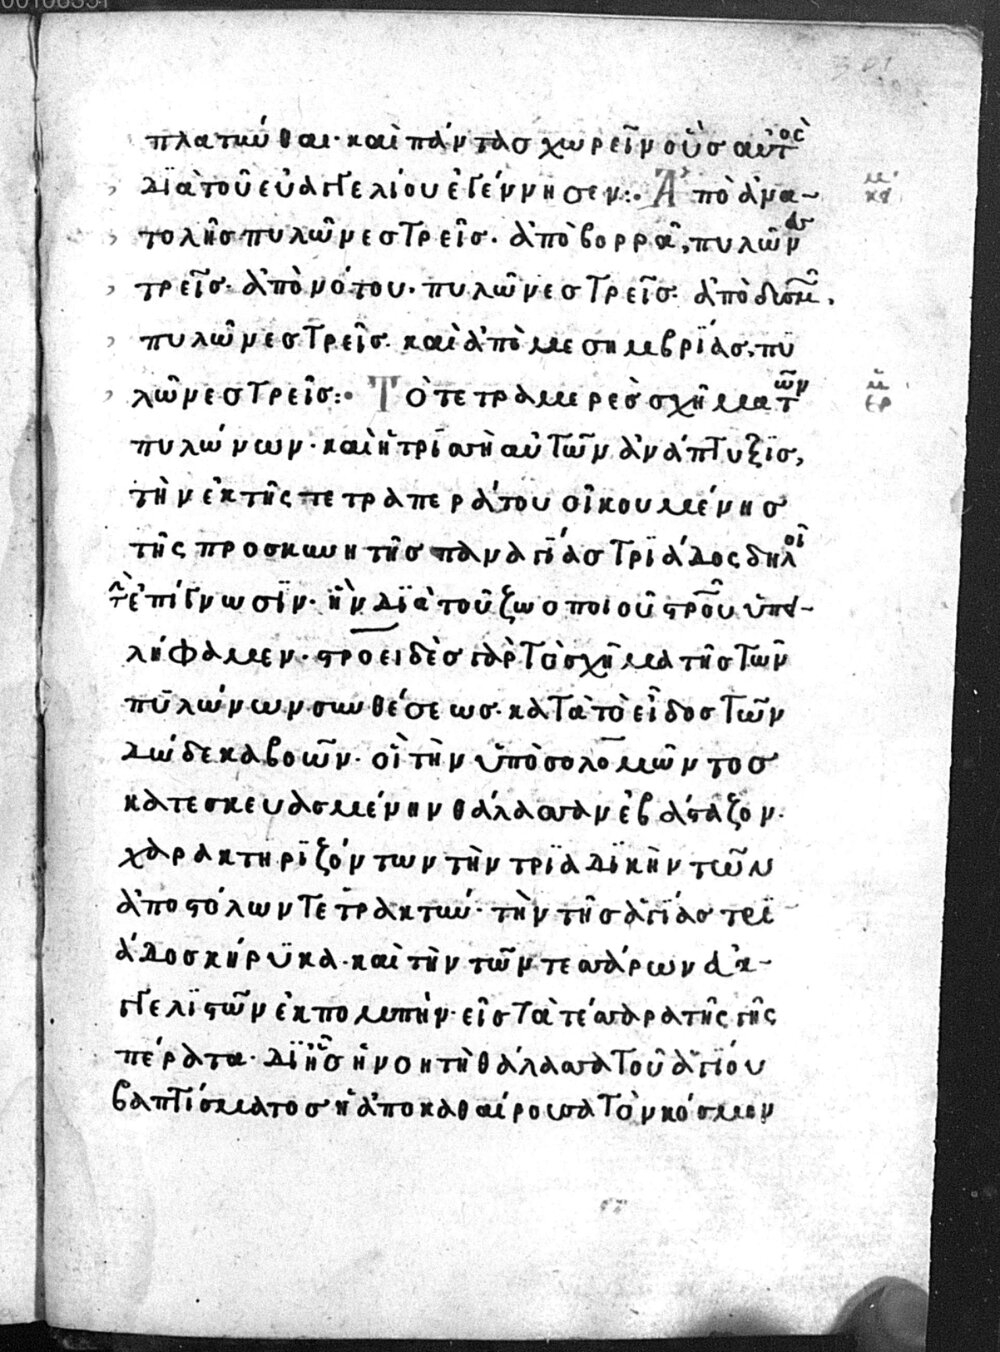 πλατῦν θαι· καὶ πάντας χωρεῖν οὓς αὐτὸς
διὰ τοῦ εὐαγγελίου ἐγέννησεν:· Ἀπὸ ἀνα-
τολῆς πυλῶνες τρεῖς· ἀπὸ βορρᾶ, πυλῶνες
τρεῖς· ἀπὸ νότου· πυλῶνες τρεῖς· ἀπὸ δυσμῶν·
πυλῶνες τρεῖς· καὶ ἀπὸ μεσημβρίας, πυ
λῶνες τρεῖς:· Τὸ τετραμερὲς σχῆμα τῶν
πυλώνων· καὶ ἡ τρισσὴ αὐτῶν ἀνάπτυξις,
τὴν ἐκ τῆς τετραπεράτου οἰκουμένης
τῆς προσκυνητῆς παναγίας τριάδος δηλοῖ
τὴν ἐπίγνωσιν· ἣν διὰ τοῦ ζωοποιοῦ σταυροῦ ὑπει-
λήφαμεν· σταυροειδὲς γὰρ τὸ σχῆμα τῆς τῶν
πυλώνων συνθέσεως· κατὰ τὸ εἶδος τῶν
δώδεκα βοῶν· οἳ τὴν ὑπὸ σολομῶντος
κατεσκευασμένην θάλασσαν ἐβάσταζον·
χαρακτηριζόντων τὴν τριαδικὴν τῶν
ἀποστόλων τετρακτύν· τὴν τῆς ἁγίας τρι
άδος κήρυκα· καὶ τὴν τῶν τεσσάρων εὐα-
γγελιστῶν ἐκπομπὴν· εἰς τὰ τέσσαρα τῆς γῆς
πέρατα· δι' ἧς ἡ νοητὴ θάλασσα τοῦ ἁγίου
βαπτίσματος ἡ ἀποκαθαίρουσα τὸν κόσμον